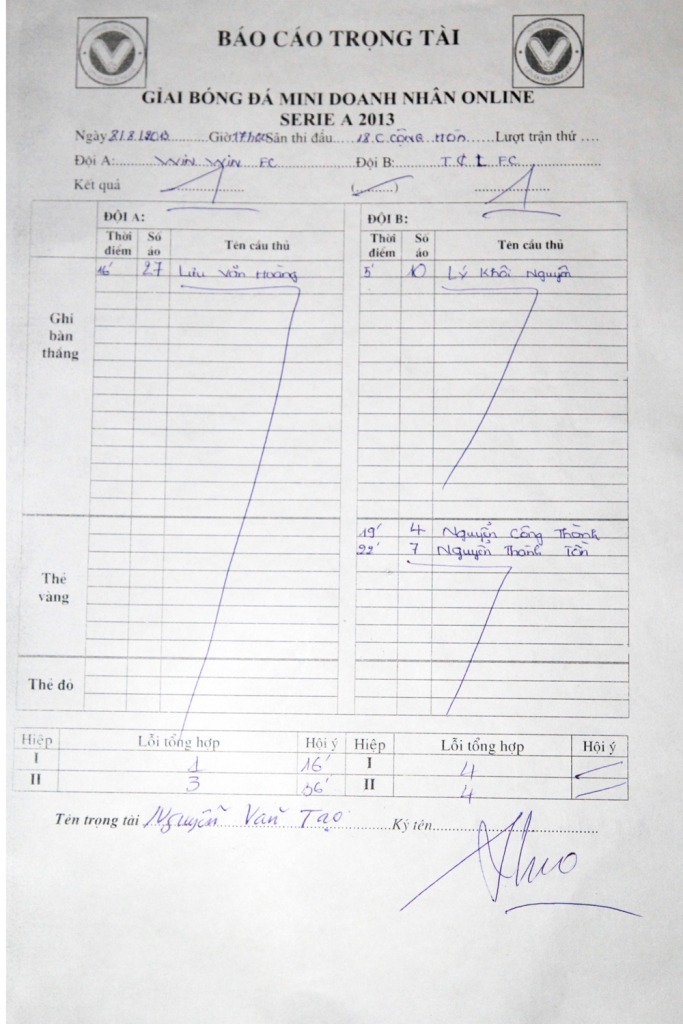 BÁO CÁO TRỌNG TÀI
GIẢI BÓNG ĐÁ MINI DOANH NHÂN ONLINE
SERIE A 2013
Ngày 31.8.2013 Giờ 17h00 Sân thi đấu 18.C.CỘNG HOÀ Lượt trận thứ ....
Đội A: WIN WIN FC Đội B: T&L FC
Kết quả 1 (.........) 1
ĐỘI A: ĐỘI B:
Thời điểm Số áo Tên cầu thủ Thời điểm Số áo Tên cầu thủ
Ghi bàn thắng
16' 27 Lưu Văn Hoàng 5' 10 Lý Khôi Nguyên
Thẻ vàng
19' 4 Nguyễn Công Thành
22' 7 Nguyễn Thành Tấn
Thẻ đỏ
Hiệp Lỗi tổng hợp Hội ý Hiệp Lỗi tổng hợp Hội ý
I 1 16' I 4
II 3 36' II 4
Tên trọng tài Nguyễn Văn Tạo Ký tên